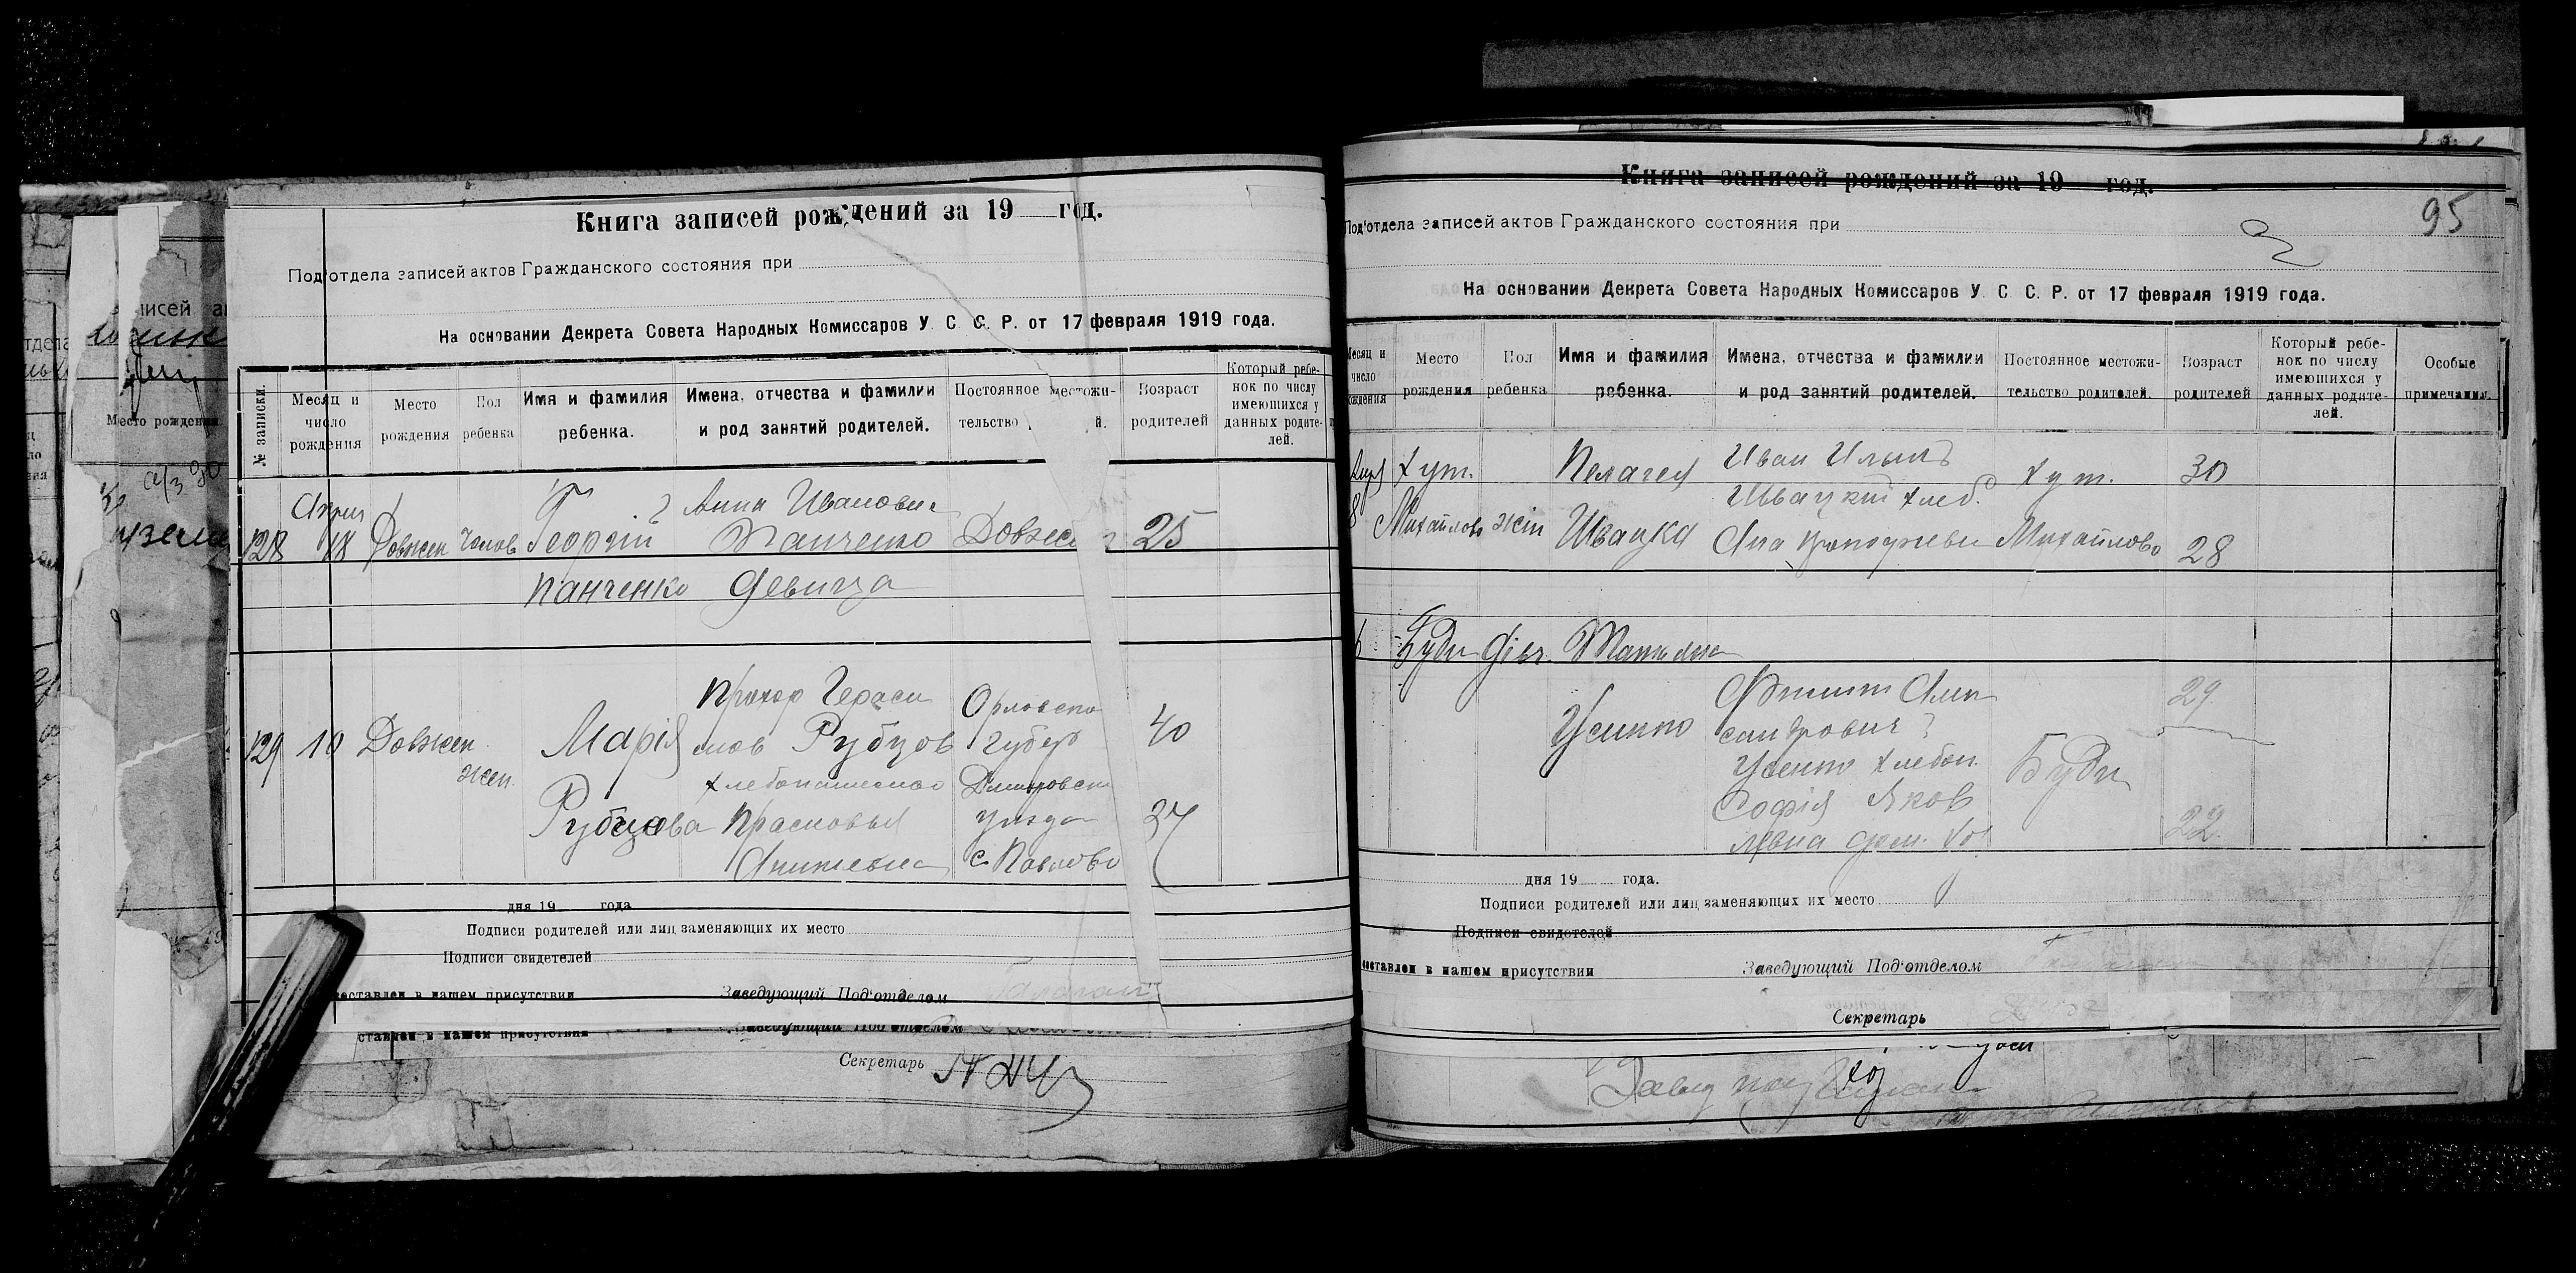 Книга записей рождений за 19 год.
Под'отдела записей актов Гражданского состояния при
На основании Декрета Совета Народных Комиссаров У. С. С. Р. от 17 февраля 1919 года.
№ записки.
Месяц и число рождения
Место рождения
Пол ребенка
Имя и фамилия ребенка.
Имена, отчества и фамилии и род занятий родителей.
Постоянное местожи-
тельство й.
Возраст родителей
Который ребе-
нок по числу
имеющихся у
данных родите-
лей.
Место рождения
128 18 Довжен Чолов Георгій
Анна Ивановне
Панченко
25
Панченко Девица
129 10 Довжен жен. Марія
Рубцова
Прохор Гераси
мов Рубцов
хлебопашество
Прасковья
Орловско
губер
Дмитровски
уезда
с. Павлово
40
37
дня 19 года
Подписи родителей или лиц заменяющих их место
Подписи свидетелей
составлен в нашем присутствии
Заведующий Под'отделом
ставлен в нашем присутствии
Заведующий Под'отделом
Секретарь
Книга записей рождений за 19 год.
95
Под'отдела записей актов Гражданского состояния при
На основании Декрета Совета Народных Комиссаров У. С. С. Р. от 17 февраля 1919 года.
Месяц и
число
рождения
Место рождения
Пол ребенка
Имя и фамилия ребенка.
Имена, отчества и фамилии и род занятий родителей.
Постоянное местожи-
тельство родителей.
Возраст родителей
Который ребе-
нок по числу
имеющихся у
данных родите-
лей.
Особые примечания.
8 хут.
Михайлово жін
Пелагея
Швацка
Иван Ильич
Швацкий хлеб.
хут.
Михайлово
30
28
Буди дівч. Татьяна
Усенко
сандрович
Усенко хлебоп.
Софія Яков
левна
Буди
29
22
дня 19 года.
Подписи родителей или лиц заменяющих их место
Подписи свидетелей
составлен в нашем присутствии
Заведующий Под'отделом
Секретарь